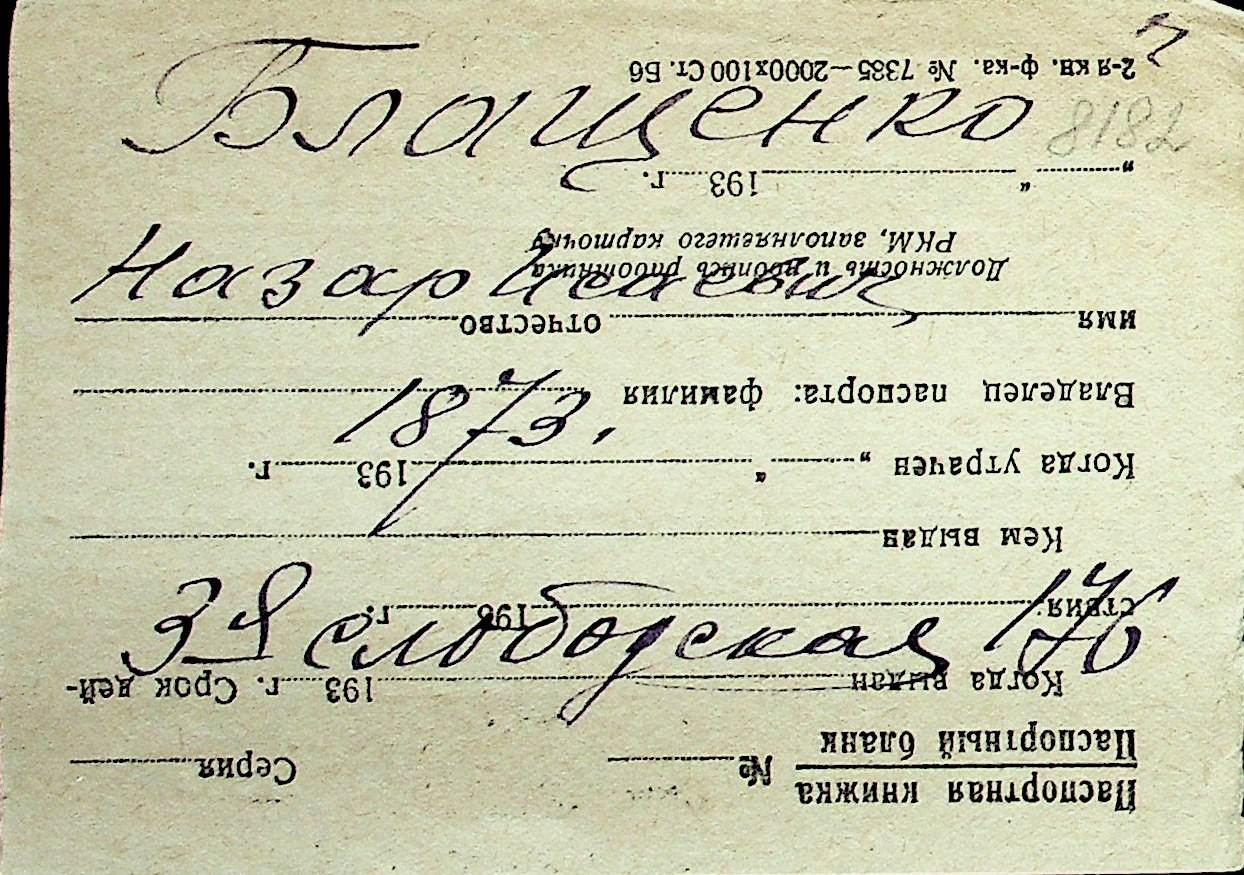 Блащенко 8182
Назар Исаевич
1873.
3-я слободская 176
Паспортная книжка
Паспортный бланк № Серия
Когда выдан 193 г. Срок дей-
ствия 193 г.
Кем выдан
Когда утрачен „ “ 193 г.
Владелец паспорта: фамилия
имя отчество
Должность и подпись работника
РКМ, заполняешего карточку
„ “ 193 г.
2-я кн. ф-ка. № 7385—2000x100 Ст. Б6